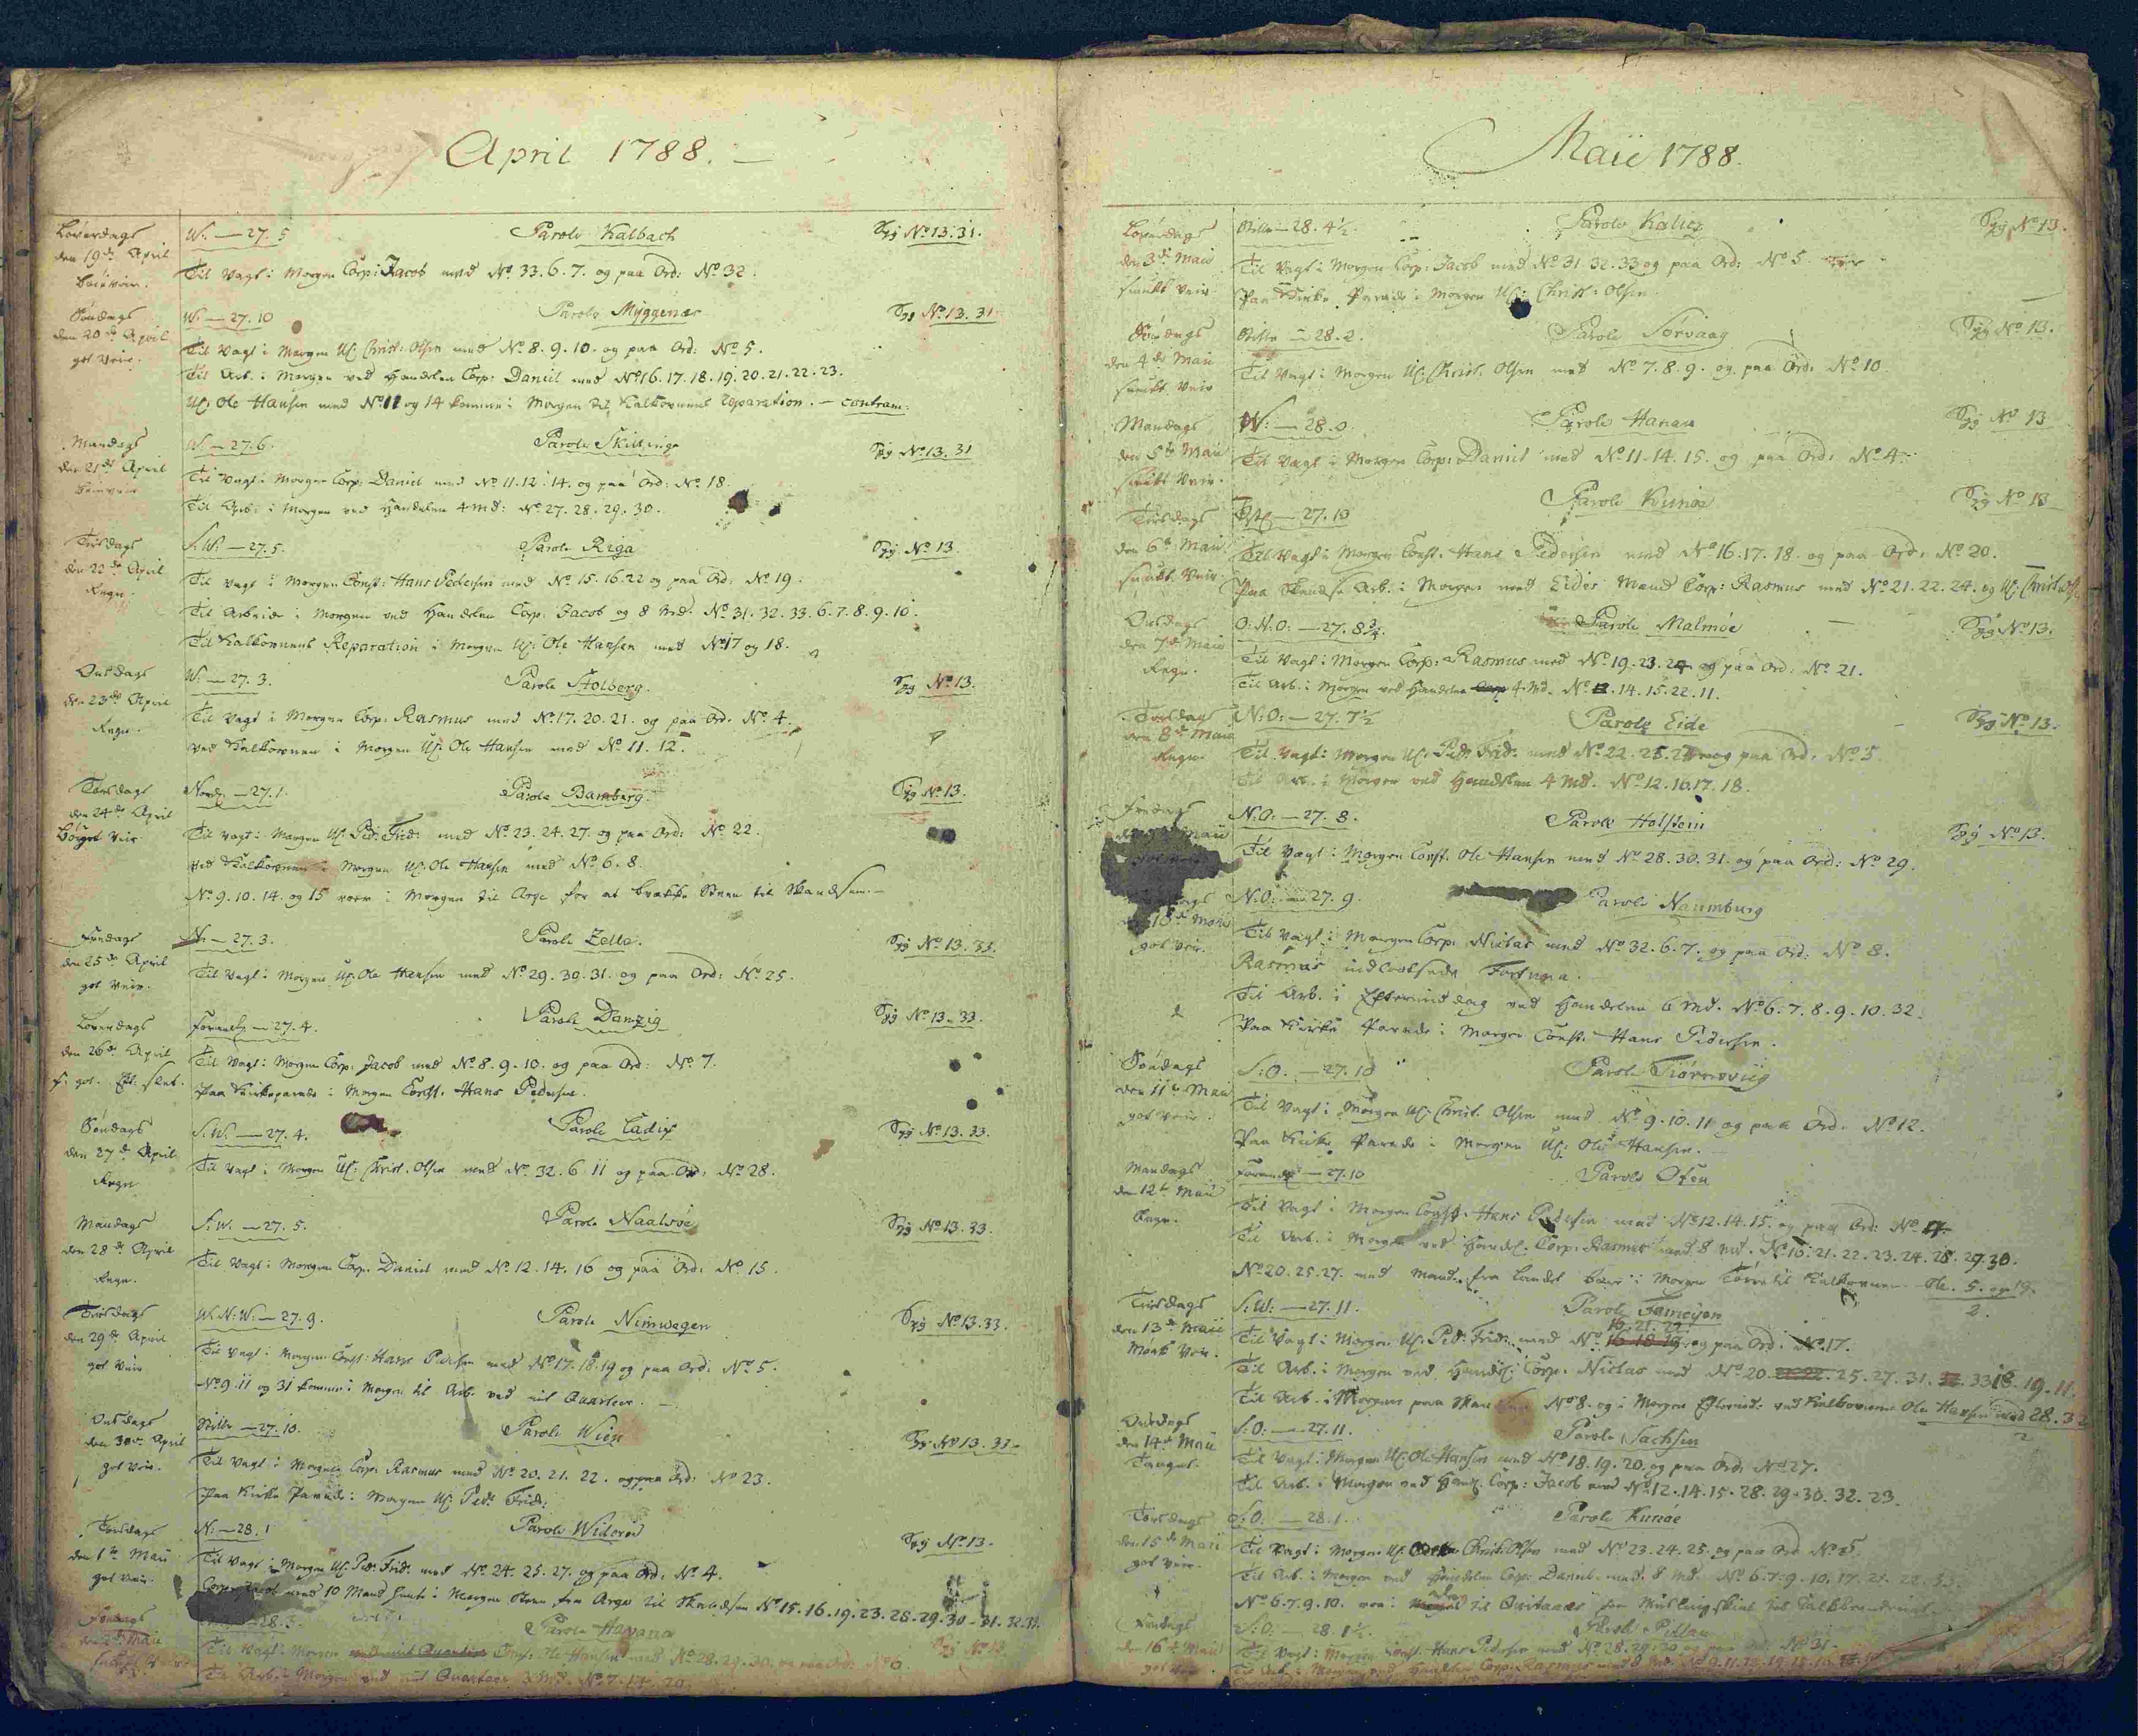 April 1788.
Løverdags W. — 27. 5 Parole Kalbach Syg No 13. 31.
den 19de April Til Vagt i Morgen Corp: Jacob med No 33. 6. 7. og paa Ord: No 32.
Søndags W. — 27. 10 Parole Myggenæs Syg No 13. 31
den 20de April Til Vagt i Morgen Uf: Christ: Olsen med No 8. 9. 10. og paa Ord: No 5.
got Veir. Til Arb. i Morgen ved Handelen Corp: Daniel med No 16. 17. 18. 19. 20. 21. 22. 23.
Uf: Ole Hansen med No 11 og 14 komme i Morgen til Kalkovnens Reparation. — contram:
Mandags W. — 27. 6. Parole Skillinge Syg No 13. 31
den 21de April Til Vagt i Morgen Corp: Daniel med No 11. 12. 14. og paa Ord: No 18.
Til Arb: i Morgen ved Handelen 4 Md: No 27. 28. 29. 30.
Tirsdags S. W. — 27. 5. Parole Riga Syg No 13.
den 22de April Til Vagt i Morgen Const: Hans Pedersen med No 15. 16. 22 og paa Ord: No 19.
Regn. Til Arbeide i Morgen ved Handelen Corp: Jacob og 8 Md. No 31. 32. 33. 6. 7. 8. 9. 10.
Til Kalkovnens Reparation i Morgen Uf: Ole Hansen med No 17 og 18.
Onsdags W. — 27. 3. Parole Stolberg. Syg No 13.
den 23de April Til Vagt i Morgen Corp: Rasmus med No 17. 20. 21. og paa Ord. No 4.
Regn. ved Kalkovnen i Morgen Uf: Ole Hansen med No 11. 12.
Torsdags Nord — 27. 1. Parole Bamberg. Syg No 13.
den 24de April Til Vagt i Morgen Uf: Ped: Frid: med No 23. 24. 27. og paa Ord: No 22.
Veir ved Kalkovnen i Morgen Uf: Ole Hansen med No 6. 8.
No 9. 10. 14. og 15 roer i Morgen til Arge for at brække Steen til Skandsen. —
Fredags N. — 27. 3. Parole Zelle. Syg No 13. 33.
den 25de April Til Vagt i Morgen Uf: Ole Hansen med No 29. 30. 31. og paa Ord: No 25.
got Veir.
Løverdags — 27. 4. Parole Danzig Syg No 13. 33.
den 26de April Til Vagt i Morgen Corp: Jacob med No 8. 9. 10. og paa Ord: No 7.
Paa Kirkeparade i Morgen Const. Hans Pedersen.
Søndags S. W. — 27. 4. Parole Cadix Syg No 13. 33.
den 27de April Til Vagt i Morgen Uf: Christ. Olsen med No 32. 6. 11 og paa Ord: No 28.
Regn
Mandags S. W. — 27. 5. Parole Naalsøe Syg No 13. 33.
den 28de April Til Vagt i Morgen Corp. Daniel med No 12. 14. 16 og paa Ord: No 15.
Regn.
Tirsdags W. N: W: — 27. 9. Parole Nimwegen Syg No 13. 33.
den 29de April Til Vagt i Morgen Const: Hans Pedersen med No 17. 18. 19 og paa Ord: No 5.
got Veir No 9. 11 og 31 komme i Morgen til Arb. ved mit Quarteer. —
Onsdags Stille — 27. 10. Parole Wien Syg No 13. 33.
den 30te April Til Vagt i Morgen Corp: Rasmus med No 20. 21. 22. og paa Ord: No 23.
got Veir. Paa Kirke Parade i Morgen Uf: Ped: Frid:
Torsdags N: — 28. 1 Parole Widerøe Syg No 13.
den 1te Maii Til Vagt i Morgen Uf: Ped: Frid: med No 24. 25. 27. og paa Ord. No 4.
got Veir. Corp: Jacob med 10 Mand hente i Morgen Steen fra Arge til Skandsen No 15. 16. 19. 23. 28. 29. 30 - 31. 32. 33.
Fredags 28. 3. Parole Havana Syg No 13
Til Vagt i Morgen Const. Ole Hansen med No 28. 29. 30. og paa Ord: No 6.
Til Arb. i Morgen ved mit Quarteer 3 Md. No 7. 14. 20.
Maii 1788.
Løverdags Stille — 28. 4½. Parole Syg No 13.
den 3de Maii Til Vagt i Morgen Corp: Jacob med No 31. 32. 33 og paa Ord: No 5.
smukt Veir. Paa Kirke Parade i Morgen Uf: Christ: Olsen.
Søndags Stille — 28. 2. Parole Sørvaag Syg No 13.
den 4de Maii Til Vagt i Morgen Uf: Christ. Olsen med No 7. 8. 9. og paa Ord: No 10.
smukt Veir
Mandags W: — 28. 0. Parole Hanau Syg No 13
den 5te Maii Til Vagt i Morgen Corp: Daniel med No 11. 14. 15. og paa Ord: No 4.
smukt Veir.
Tirsdags — 27. 10 Parole Kunøe Syg No 13
den 6te Maii Til Vagt i Morgen Const. Hans Pedersen med No 16. 17. 18. og paa Ord: No 20.
smukt Veir. Paa Skandse Arb. i Morgen med Eides Mand Corp: Rasmus med No 21. 22. 24. og Uf: Christ: Ols
Onsdags O. N. O: — 27. 8¾. Parole Malmøe Syg No 13.
den 7de Maii Til Vagt i Morgen Corp: Rasmus med No 19. 23. 24 og paa Ord: No 21.
Regn. Til Arb. i Morgen ved Handelen 4 Md. No 14. 15. 22. 11.
Torsdags N: O: — 27. 7½ Parole Eide Syg No 13.
den 8de Maii Til Vagt i Morgen Uf: Ped: Frid: med No 22. 25. og paa Ord. No 5.
Regn. Til Arb. i Morgen ved Handelen 4 Md. No 12. 16. 17. 18.
Fredags N. O: — 27. 8. Parole Holstein Syg No 13.
Maii Til Vagt i Morgen Const. Ole Hansen med No 28. 30. 31. og paa Ord: No 29.
N. O: — 27. 9. Parole Naumburg
10de Maii Til Vagt i Morgen Corp: Niclas med No 32. 6. 7. og paa Ord: No 8.
got Veir. Rasmus indlodsede Fortuna.
Til Arb. i Eftermiddag ved Handelen 6 Md. No 6. 7. 8. 9. 10. 32.
Paa Kirke Parade i Morgen Const. Hans Pedersen.
Søndags S: O. — 27. 10 Parole Tiørnevig
den 11te Maii Til Vagt i Morgen Uf: Christ. Olsen med No 9. 10. 11 og paa Ord. No 12.
got Veir. Paa Kirke Parade i Morgen Uf: Ole Hansen. —
Mandags — 27. 10 Parole Ofen
den 12te Maii Til Vagt i Morgen Const. Hans Pedersen med No 12. 14. 15. og paa Ord: No 4.
Regn. Til Arb. i Morgen ved Handel: Corp: Rasmus med 8 Md. No 16. 21. 22. 23. 24. 28. 29. 30.
No 20. 25. 27. med Mand. fra Landet bær i Morgen Tørv til Kalkovnen
Tirsdags S: W: — 27. 11. Parole
16. 21. 22
den 13de Maii Til Vagt i Morgen Uf: Ped: Frid: med No 16 18 19 og paa Ord: No 17.
Mørk Veir. Til Arb. i Morgen ved Handel: Corp. Niclas med No 20. 21. 22. 25. 27. 31. 32. 33 18. 19. 11.
Til Arb. i Morgen paa Skandsen No 8. og i Morgen Efterm: ved Kalkovnen Ole Hansen med 28. 32
Onsdags S: O: — 27. 11. Parole Sachsen
den 14de Maii Til Vagt i Morgen Uf: Ole Hansen med No 18. 19. 20. og paa Ord: No 27.
Taaget. Til Arb. i Morgen ved Hand: Corp: Jacob med No 12. 14. 15. 28. 29. 30. 32. 23.
Torsdags S: O: — 28. 1. Parole Kunøe
den 15de Maii Til Vagt i Morgen Uf: Christ: Olsen med No 23. 24. 25. og paa Ord No 5
got Veir. Til Arb. i Morgen ved Handelen Corp: Daniel med 8 Md. No 6. 7. 9. 10. 17. 21. 22. 33.
No 6. 7. 9. 10. roer i til Qvitanæs
Fredags S: O: — 28. 1½. Parole Pillau
den 16de Maii Til Vagt i Morgen Const. Hans Pedersen med No 28. 29. 30 og paa Ord: No 31.
got Veir. Til Arb. i Morgen ved Handelen Corp: Rasmus med 8 Md. No 9. 11.